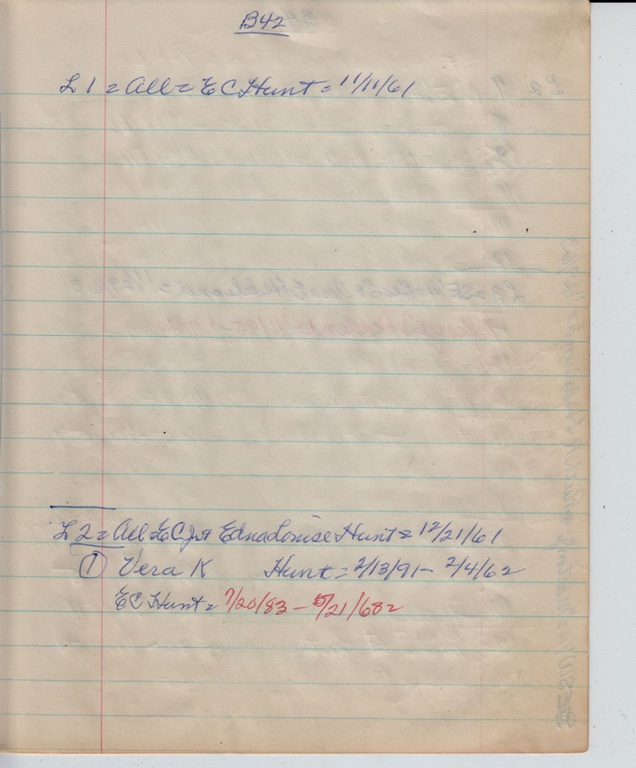 B42
L 1 = All = EC Hunt = 11/11/61
L 2 = All EC Jr & Edna Louise Hunt = 12/21/61
① Vera K Hunt = 2/13/91 - 2/4/62
EC Hunt = 7/20/83 - 5/21/68